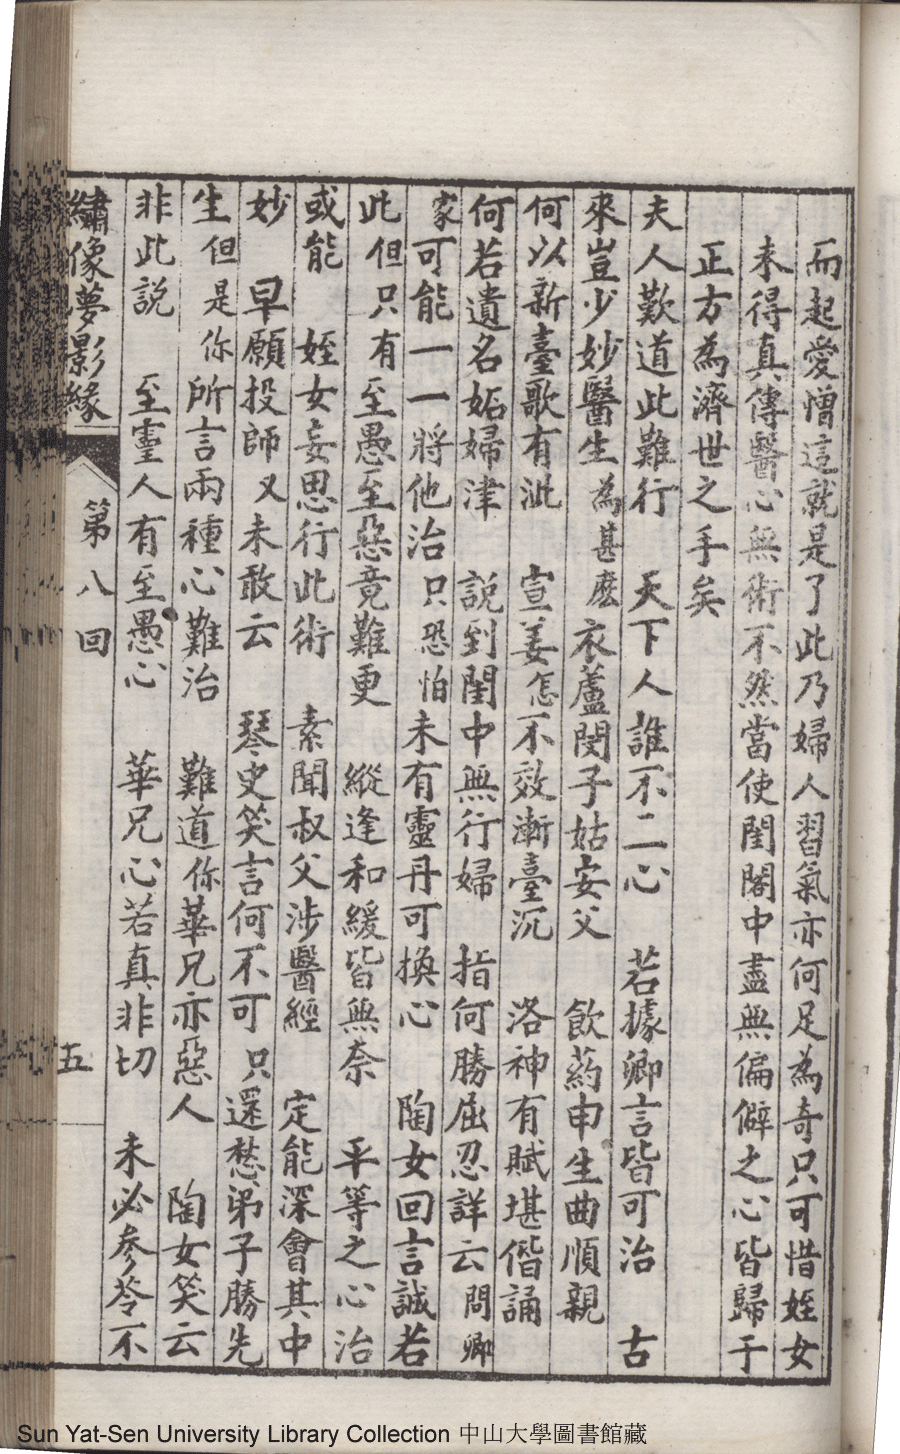 而起愛憎這就是了此乃婦人習氣亦何足為奇只可惜姪女
未得真傳醫心無術不然當使閨閣中盡無偏僻之心皆歸于
正方為濟世之手矣
夫人歎道此難行 天下人誰不二心 若據卿言皆可治 古
來豈少妙醫生為甚麽衣蘆閔子姑安父 飲葯申生曲順親
何以新臺歌有泚 宣姜怎不效漸臺沉 洛神有賦堪偕誦
何若遺名妬婦津 說到閨中無行婦 指何勝屈忍詳云問卿
家可能一一將他治只恐怕未有靈丹可換心 陶女回言誠若
此但只有至愚至惡竟難更 縱逢和緩皆無奈 平等之心治
或能 姪女妄思行此術 素聞叔父涉醫經 定能深會其中
妙 早願投師又未敢云 琴史笑言何不可只還愁弟子勝先
生但是你所言兩種心難治 難道你華兄亦惡人 陶女笑云
非此說 至靈人有至愚心 華兄心若真非切 未必參苓不
繡像夢影緣 第八回 五
Sun Yat-Sen University Library Collection 中山大學圖書館藏